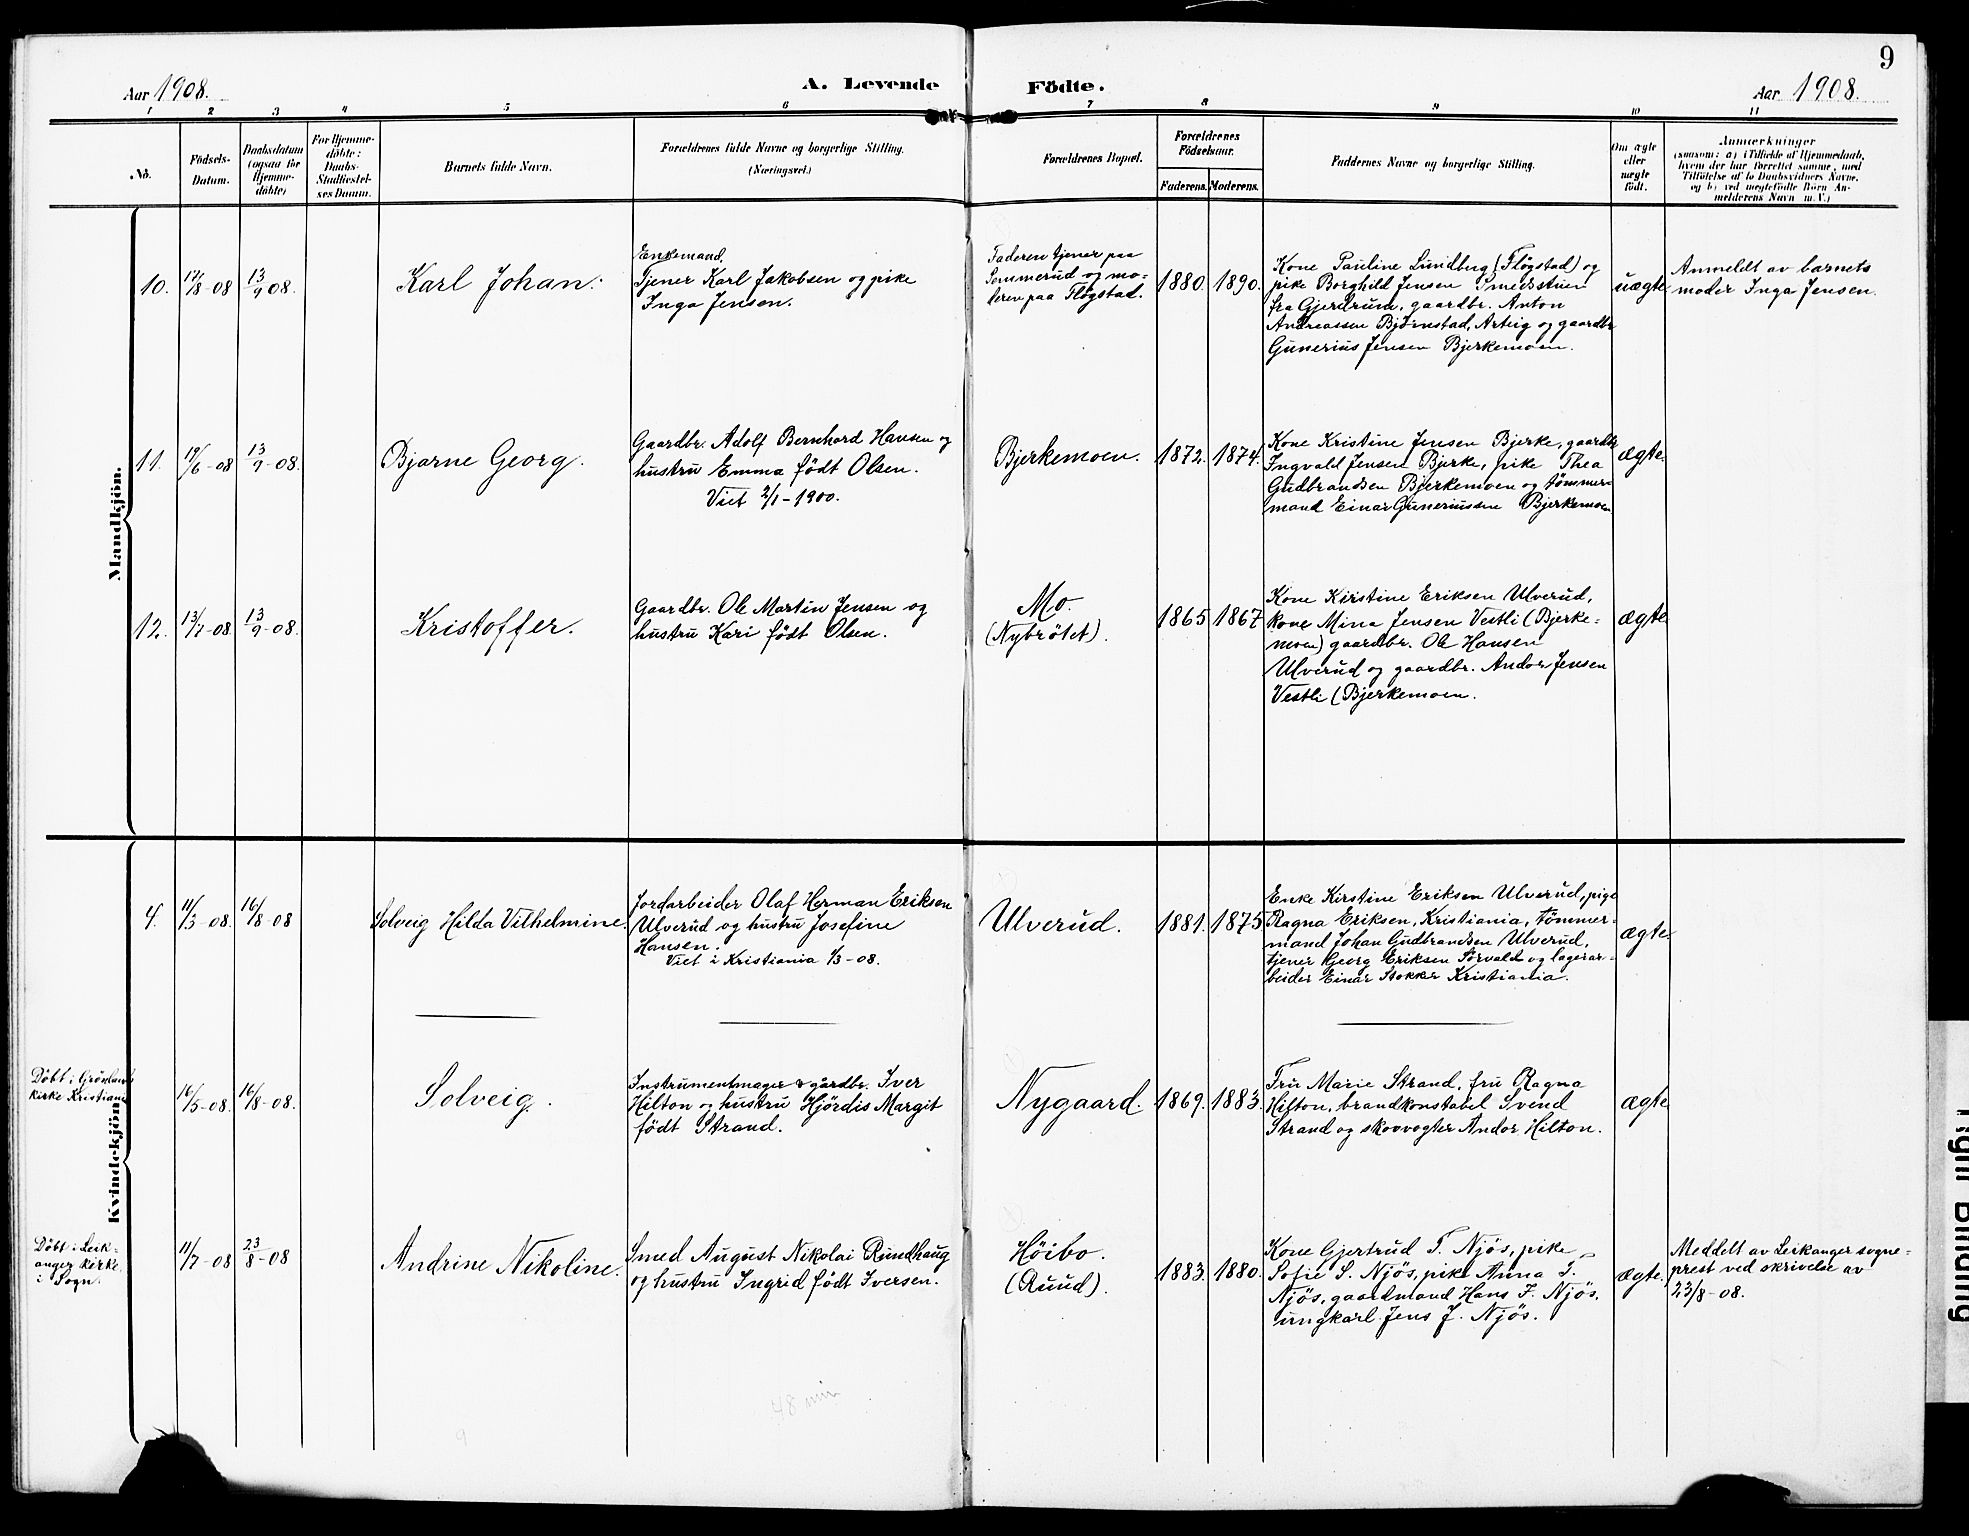 9
Aar 1908.
A. Levende Födte.
Aar 1908.
1 2 3 4 5 6 7 8 9 10 11
No.
Födsels-
Datum.
Daabsdatum
(ogsaa for
Hjemme-
döbte)
For Hjemme-
döbte:
Daabs-
Stadfæstel-
ses Datum.
Barnets fulde Navn.
Forældrenes fulde Navne og borgerlige Stilling.
(Næringsvei.)
Forældrenes Bopæl.
Forældrenes
Födselsaar.
Faderens. Moderens.
Faddernes Navne og borgerlige Stilling.
Om ægte
eller
uægte
födt.
Anmærkninger
(saasom: a) i Tilfælde af Hjemmedaab,
hvem der har forrettet samme, med
Tilföielse af to Daabsvidners Navne,
og b) ved uægtefödte Börn An-
melderens Navn m. V.)
Mandkjön.
10.
17/8-08
13/9 08.
Karl Johan.
Enkemand.
Tjener Karl Jakobsen og pike
Inga Jensen.
Faderen tjener paa
Sommerud og mo-
deren paa Fløgstad.
1880.
1890.
Kone Pauline Lundberg (Fløgstad) og
pike Borghild Jensen Smedstuen
fra Gjerdrum, gaardbr. Anton
Andreassen Bjørnstad, Arteig og gaardbr
Gunerius Jensen Bjerkemoen.
uægte
Anmeldt av barnets
moder Inga Jensen.
11.
19/6-08
13/9-08.
Bjarne Georg.
Gaardbr. Adolf Bernhard Hansen og
hustru Emma født Olsen.
Viet 2/1-1900.
Bjerkemoen.
1872.
1874.
Kone Kristine Jensen Bjerke, gaardbr
Ingvald Jensen Bjerke, pike Thea
Gudbrandsen Bjerkemoen og tømmer-
mand Einar Guneriussen Bjerkemoen
ægte.
12.
13/7-08
13/9-08.
Kristoffer.
Gaardbr. Ole Martin Jensen og
hustru Kari født Olsen.
Mo.
(Nybrötet).
1865
1867
Kone Kirstine Eriksen Ulverud,
kone Mina Jensen Vestli (Bjerke-
moen) gaardbr. Ole Hansen
Ulverud og gaardbr. Andor Jensen
Vestli (Bjerkemoen.
ægte
Kvindekjön.
4.
11/3-08.
16/8-08
Solveig Hilda Vilhelmine.
Jordarbeider Olaf Herman Eriksen
Ulverud og hustru Josefine
Hansen.
Viet i Kristiania 1/3-08.
Ulverud.
1881.
1875
Enke Kirstine Eriksen Ulverud, pige
Ragna Eriksen, Kristiania, tömmer-
mand Johan Gudbrandsen Ulverud,
tjener Georg Eriksen Sørvald og lagerar-
beider Einar Stokker Kristiania.
ægte.
Döbt i Grönlands
kirke Kristiania
16/5-08.
16/8-08.
Solveig.
Instrumentmager & gårdbr. Iver
Hilton og hustru Hjördis Margit
födt Strand.
Nygaard.
1869.
1883.
Fru Marie Strand, fru Ragna
Hilton, brandkonstabel Svend
Strand og skovvogter Andor Hilton.
ægte
Döbt i Leik-
anger kirke
i Sogn.
11/7-08
23/8-08
Andrine Nikoline.
Smed August Nikolai Rundhaug
og hustru Ingrid födt Iversen.
Höibo.
(Ruud).
1883.
1880.
Kone Gjertrud T. Njös, pike
Sofie S. Njös, pike Anna I.
Njös, gaardmand Hans F. Njös,
ungkarl Jens J. Njös.
ægte.
Meddelt av Leikanger sogne-
prest ved skrivelse av
23/8-08.
48 min
9